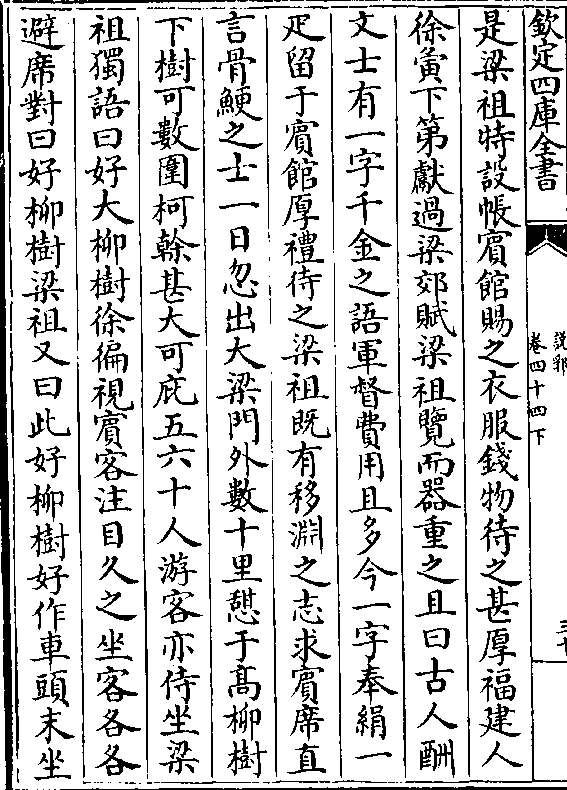 欽定四庫全書
說郛
卷四十四下
是梁祖特設帳賓館賜之衣服錢物待之甚厚福建人
徐夤下第獻過梁郊賦梁祖覽而器重之且曰古人酬
文士有一字千金之語軍督費用且多今一字奉絹一
疋留于賓館厚禮待之梁祖既有移淵之志求賓席直
言骨鯁之士一日忽出大梁門外數十里憇于高柳樹
下樹可數圍柯榦甚大可庇五六十人游客亦侍坐梁
祖獨語曰好大柳樹徐徧視賓客注目久之坐客各各
避席對曰好柳樹梁祖又曰此好柳樹好作車頭末坐